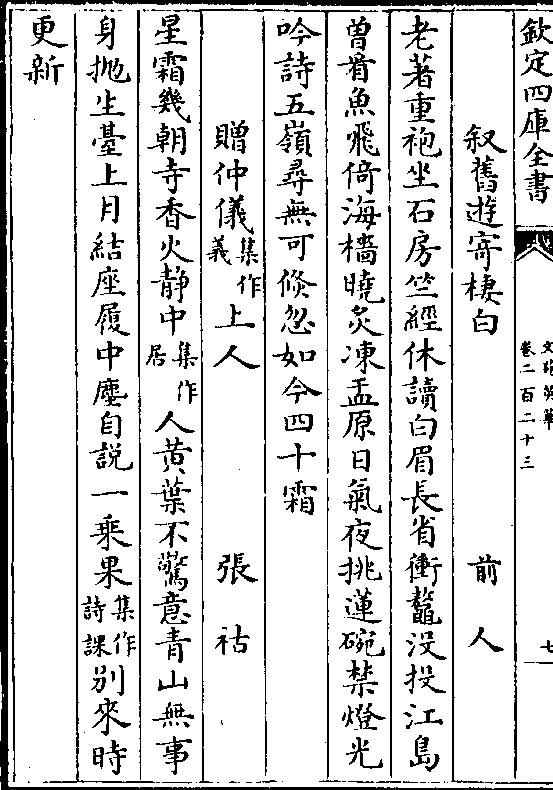 欽定四庫全書
文苑英華
卷二百二十三
七
叙舊遊寄棲白 前人
老著重袍坐石房竺經休讀白眉長省衝鼇没投江島
曽看魚飛倚海檣曉炙凍盂原日氣夜挑蓮碗禁燈光
吟詩五嶺尋無可倐忽如今四十霜
贈仲儀集作義上人 張祜
星霜幾朝寺香火静中集作居人黄葉不驚意青山無事
身抛生臺上月結座履中塵自説一乘果集作詩課别來時
更新